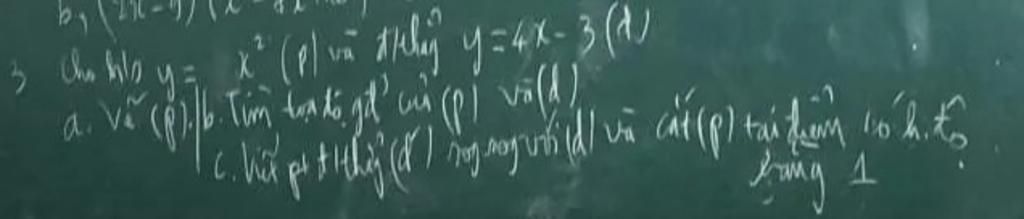 b, (2x-y)(x
3 Cho h/s y = x² (P) và đ/thẳng y = 4x - 3 (d)
a. Vẽ (P). b. Tìm toạ độ gđ² của (P) và (d)
c. Viết pt đ/thẳng (d') song song với (d) và cắt (P) tại điểm có h.độ
bằng 1